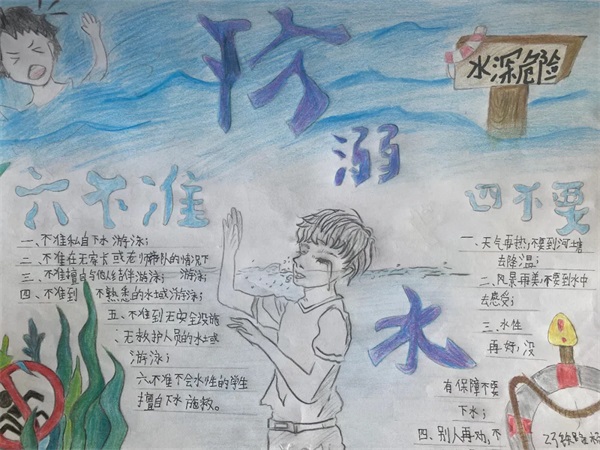 防
溺
水
水深危险
六不准
一、不准私自下水游泳;
二、不准在无家长或老师带队的情况下
游泳;
三、不准擅自与他人结伴游泳;
四、不准到不熟悉的水域游泳;
五、不准到无安全设施
无救护人员的水域
游泳;
六、不准不会水性的学生
擅自下水施救。
四不要
一、天气再热,不要到河塘
去降温;
二、风景再美,不要到水中
去感受;
三、水性
再好,没
有保障不要
下水;
四、别人再劝,不